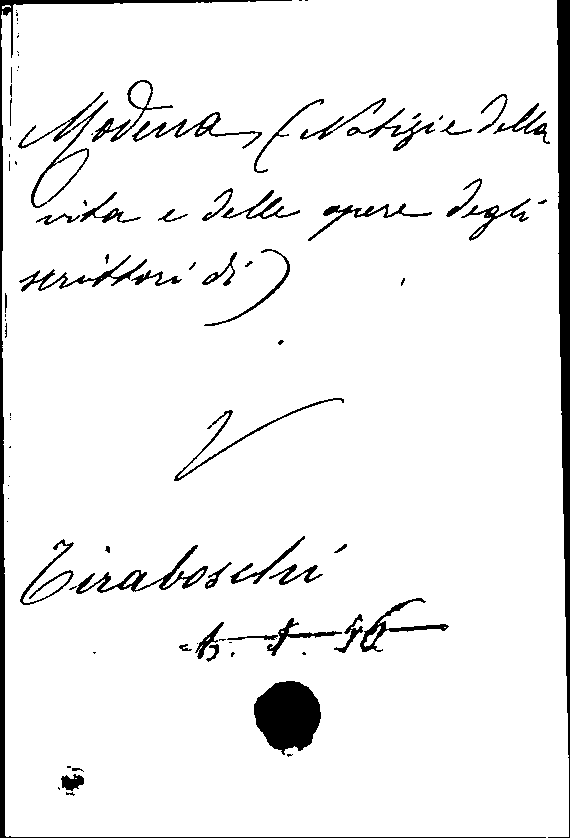 Modena, (Notizie della
vita e delle opere degli
scrittori di)
V
Tiraboschi